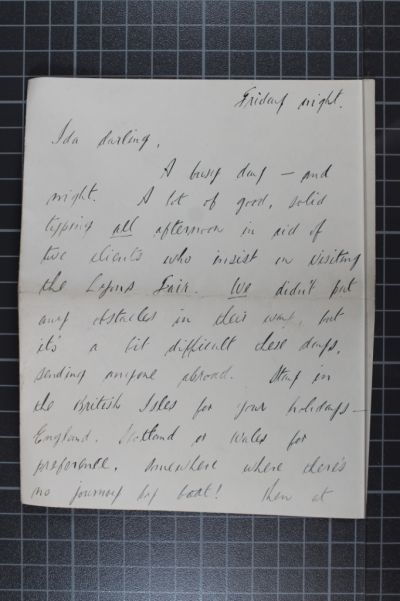 Friday night.
Ida darling,
A busy day – and
night. A lot of good, solid
typing all afternoon in aid of
two clients who insist on visiting
the Lyons Fair. We didn't put
any obstacles in their way, but
it's a bit difficult these days,
sending anyone abroad. Stay in
the British Isles for your holidays –
England, Scotland or Wales for
preference. Somewhere where there's
no journey by boat! Then at